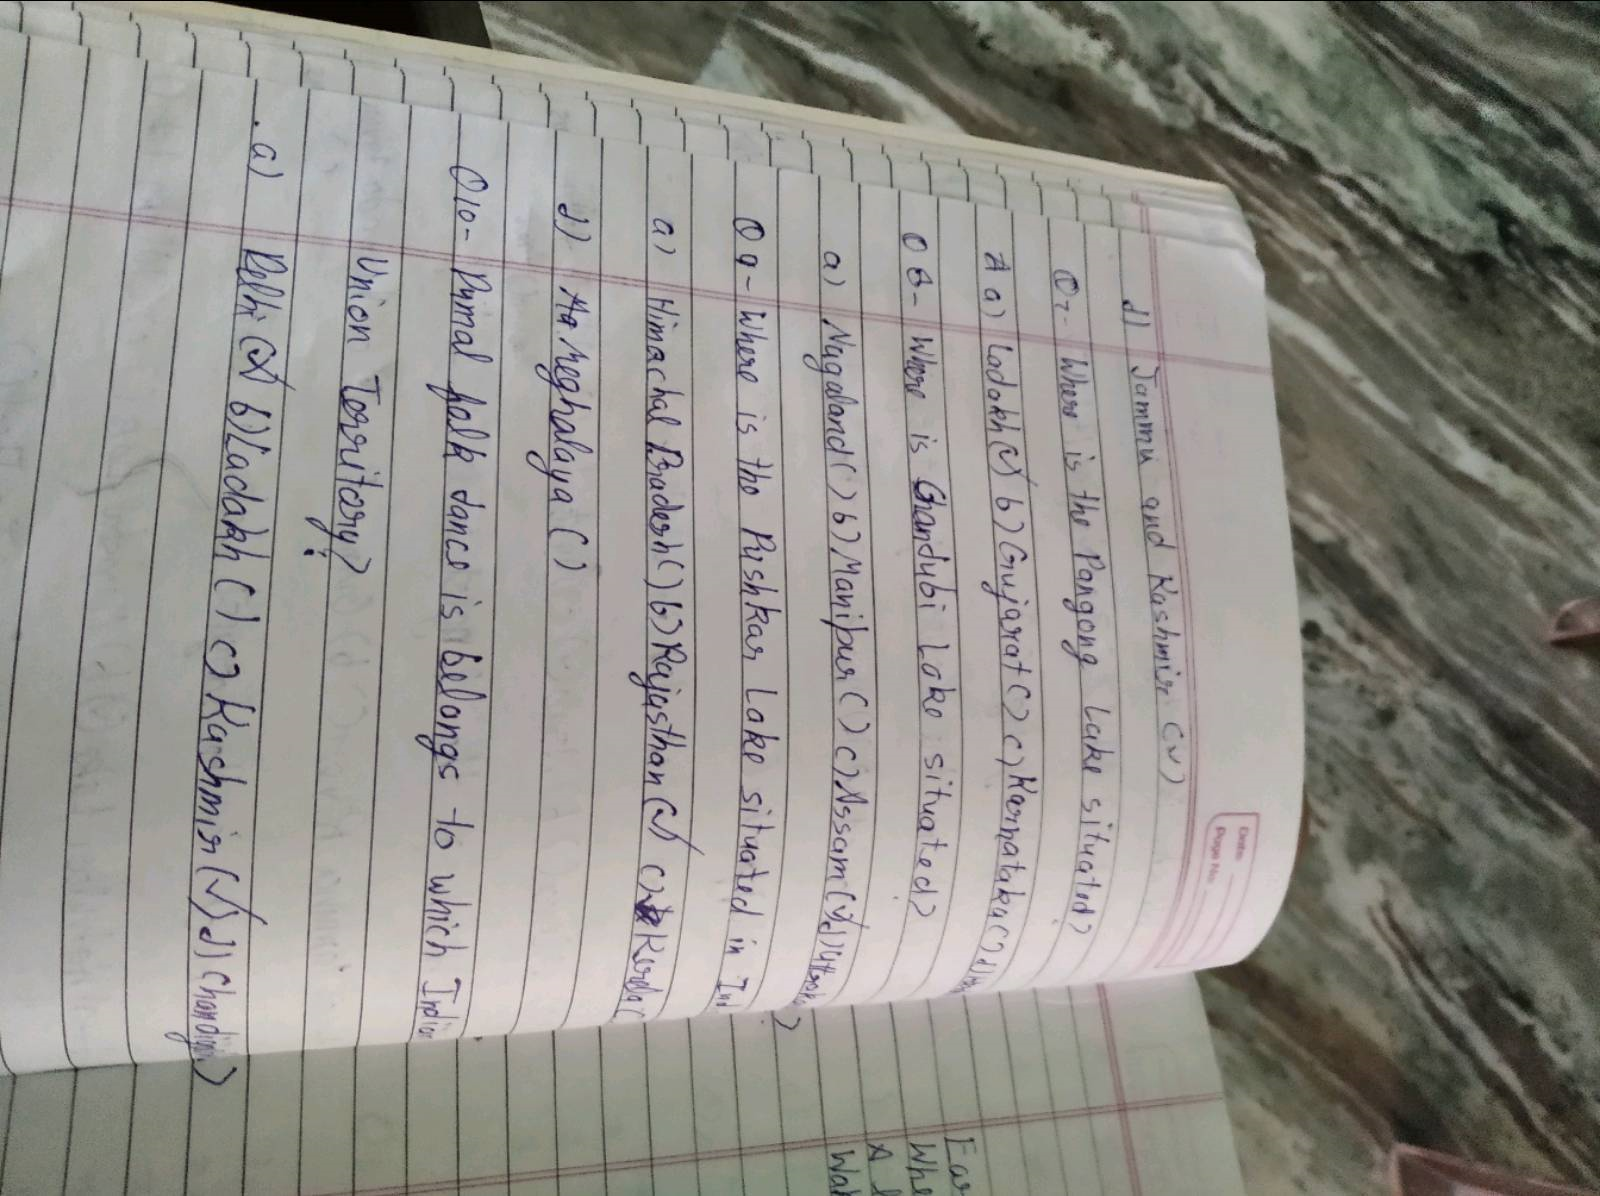 Date
Page No.
d) Jammu and Kashmir (✓)
Q7- Where is the Pangong Lake situated?
A a) Ladakh (✓) b) Gujarat ( ) c) Karnataka ( ) d)
Q 8- Where is Chandubi Lake situated?
a) Nagaland ( ) b) Manipur ( ) c) Assam (✓) d)
Q 9- Where is the Pushkar Lake situated in Ind
a) Himachal Pradesh ( ) b) Rajasthan (✓) c) Kerela (
d) Meghalaya ( )
Q10- Dumal folk dance is belongs to which Indian
Union Territory?
a) Delhi ( ) b) Ladakh ( ) c) Kashmir (✓) d) Chandigar )
Ear
Whe
A
Wat